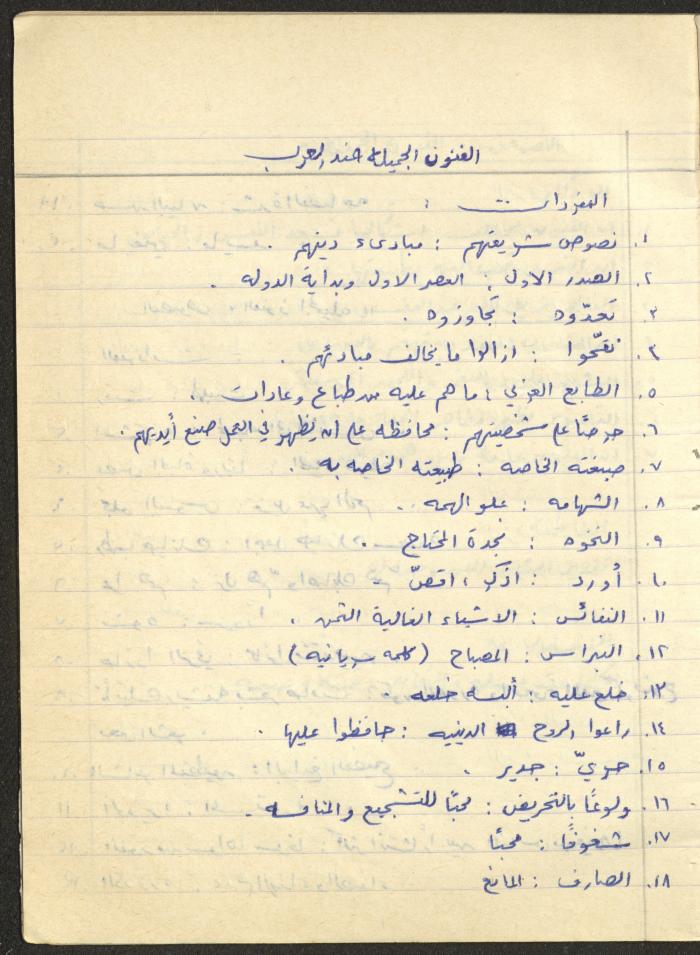 الفنون الجميلة عند العرب
المفردات :
١. نصوص شريعتهم : مبادىء دينهم .
٢. الصدر الاول : العصر الاول وبداية الدوله .
٣. تعدّوه : تجاوزوه .
٤. نقّحوا : ازالوا ما يخالف مبادئهم .
٥. الطابع العربي : ما هم عليه من طباع وعادات .
٦. حرصًا على شخصيتهم : محافظه على ان يظهر في العمل صنع أيديهم .
٧. صبغته الخاصه : طبيعته الخاصه به .
٨. الشهامه : علو الهمه ..
٩. النخوه : نجدة المحتاج .
١٠. أورد : اذكر ، اقصّ
١١. النفائس : الاشياء الغالية الثمن .
١٢. النبراس : المصباح (كلمه سريانيه)
١٣. خلع عليه : ألبسه حلعه .
١٤. راعوا الروح الدينيه : حافظوا عليها .
١٥. حريّ : جدير .
١٦. ولوعًا بالتحريض : محبًا للتشجيع والمنافسه .
١٧. شغوفًا : محبًا
١٨. الصارف : المانع